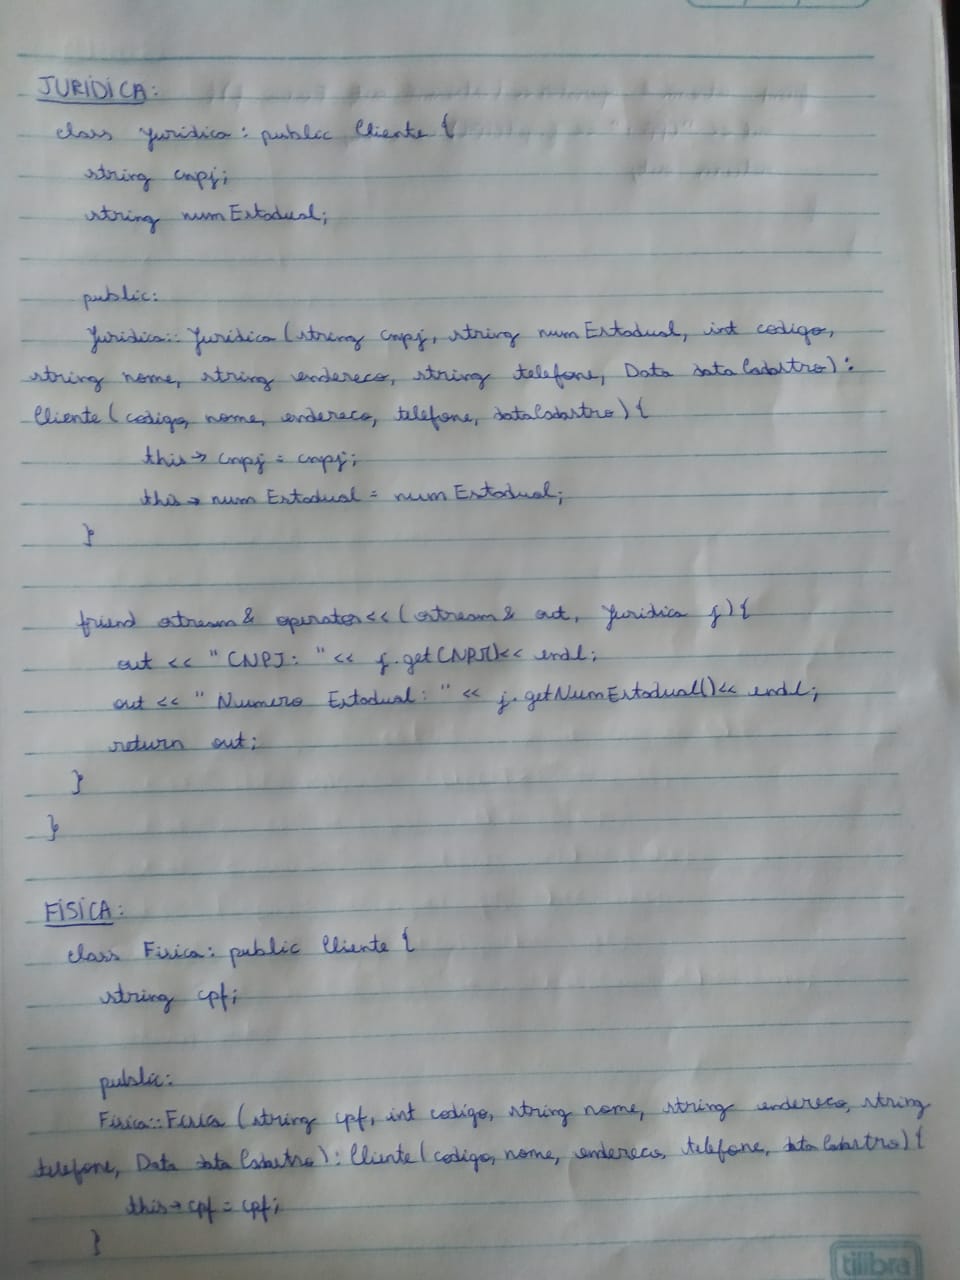 JURÍDICA:
class Juridica: public Cliente {
string cnpj;
string numEstadual;
public:
Juridica:: Juridica (string cnpj, string numEstadual, int codigo,
string nome, string endereco, string telefone, Data dataCadastro):
Cliente (codigo, nome, endereco, telefone, dataCadastro) {
this-> cnpj = cnpj;
this-> numEstadual = numEstadual;
}
friend ostream& operator<< (ostream& out, Juridica j) {
out << "CNPJ: " << j.getCNPJ()<< endl;
out << "Numero Estadual: " << j.getNumEstadual()<< endl;
return out;
}
}
FÍSICA:
class Fisica: public Cliente {
string cpf;
public:
Fisica::Fisica (string cpf, int codigo, string nome, string endereco, string
telefone, Data dataCadastro): Cliente (codigo, nome, endereco, telefone, dataCadastro) {
this-> cpf = cpf;
}
tilibra